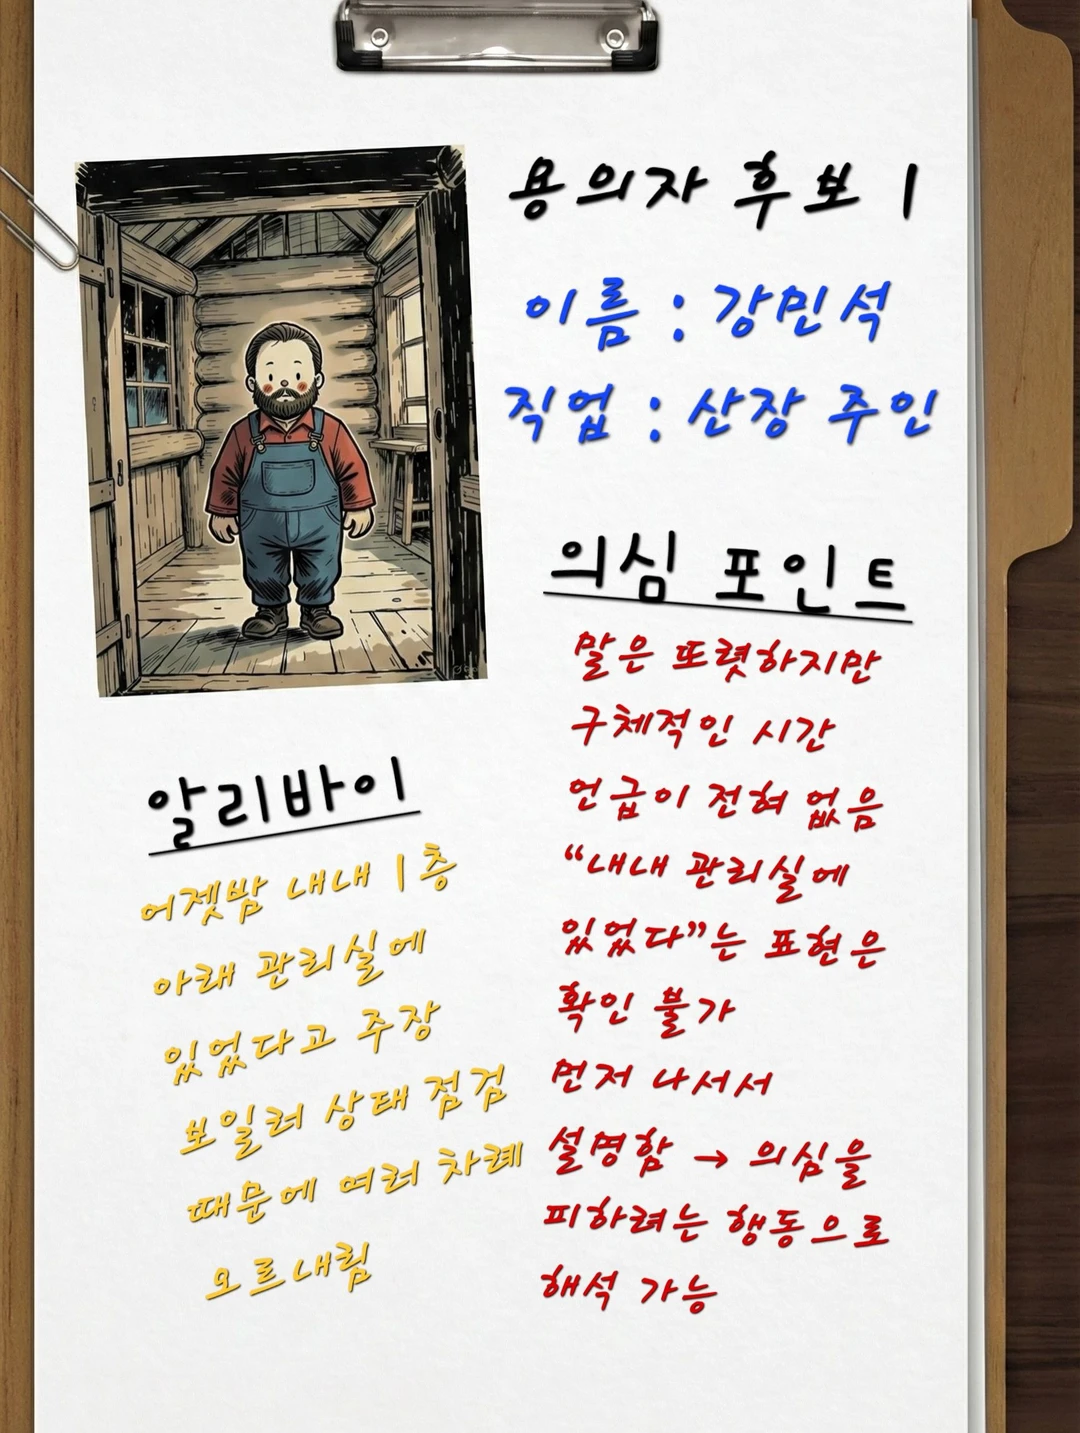 용의자 후보 1
이름 : 강민석
직업 : 산장 주인
의심 포인트
말은 또렷하지만
구체적인 시간
언급이 전혀 없음
“내내 관리실에
있었다”는 표현은
확인 불가
먼저 나서서
설명함 → 의심을
피하려는 행동으로
해석 가능
알리바이
어젯밤 내내 1층
아래 관리실에
있었다고 주장
보일러 상태 점검
때문에 여러 차례
오르내림